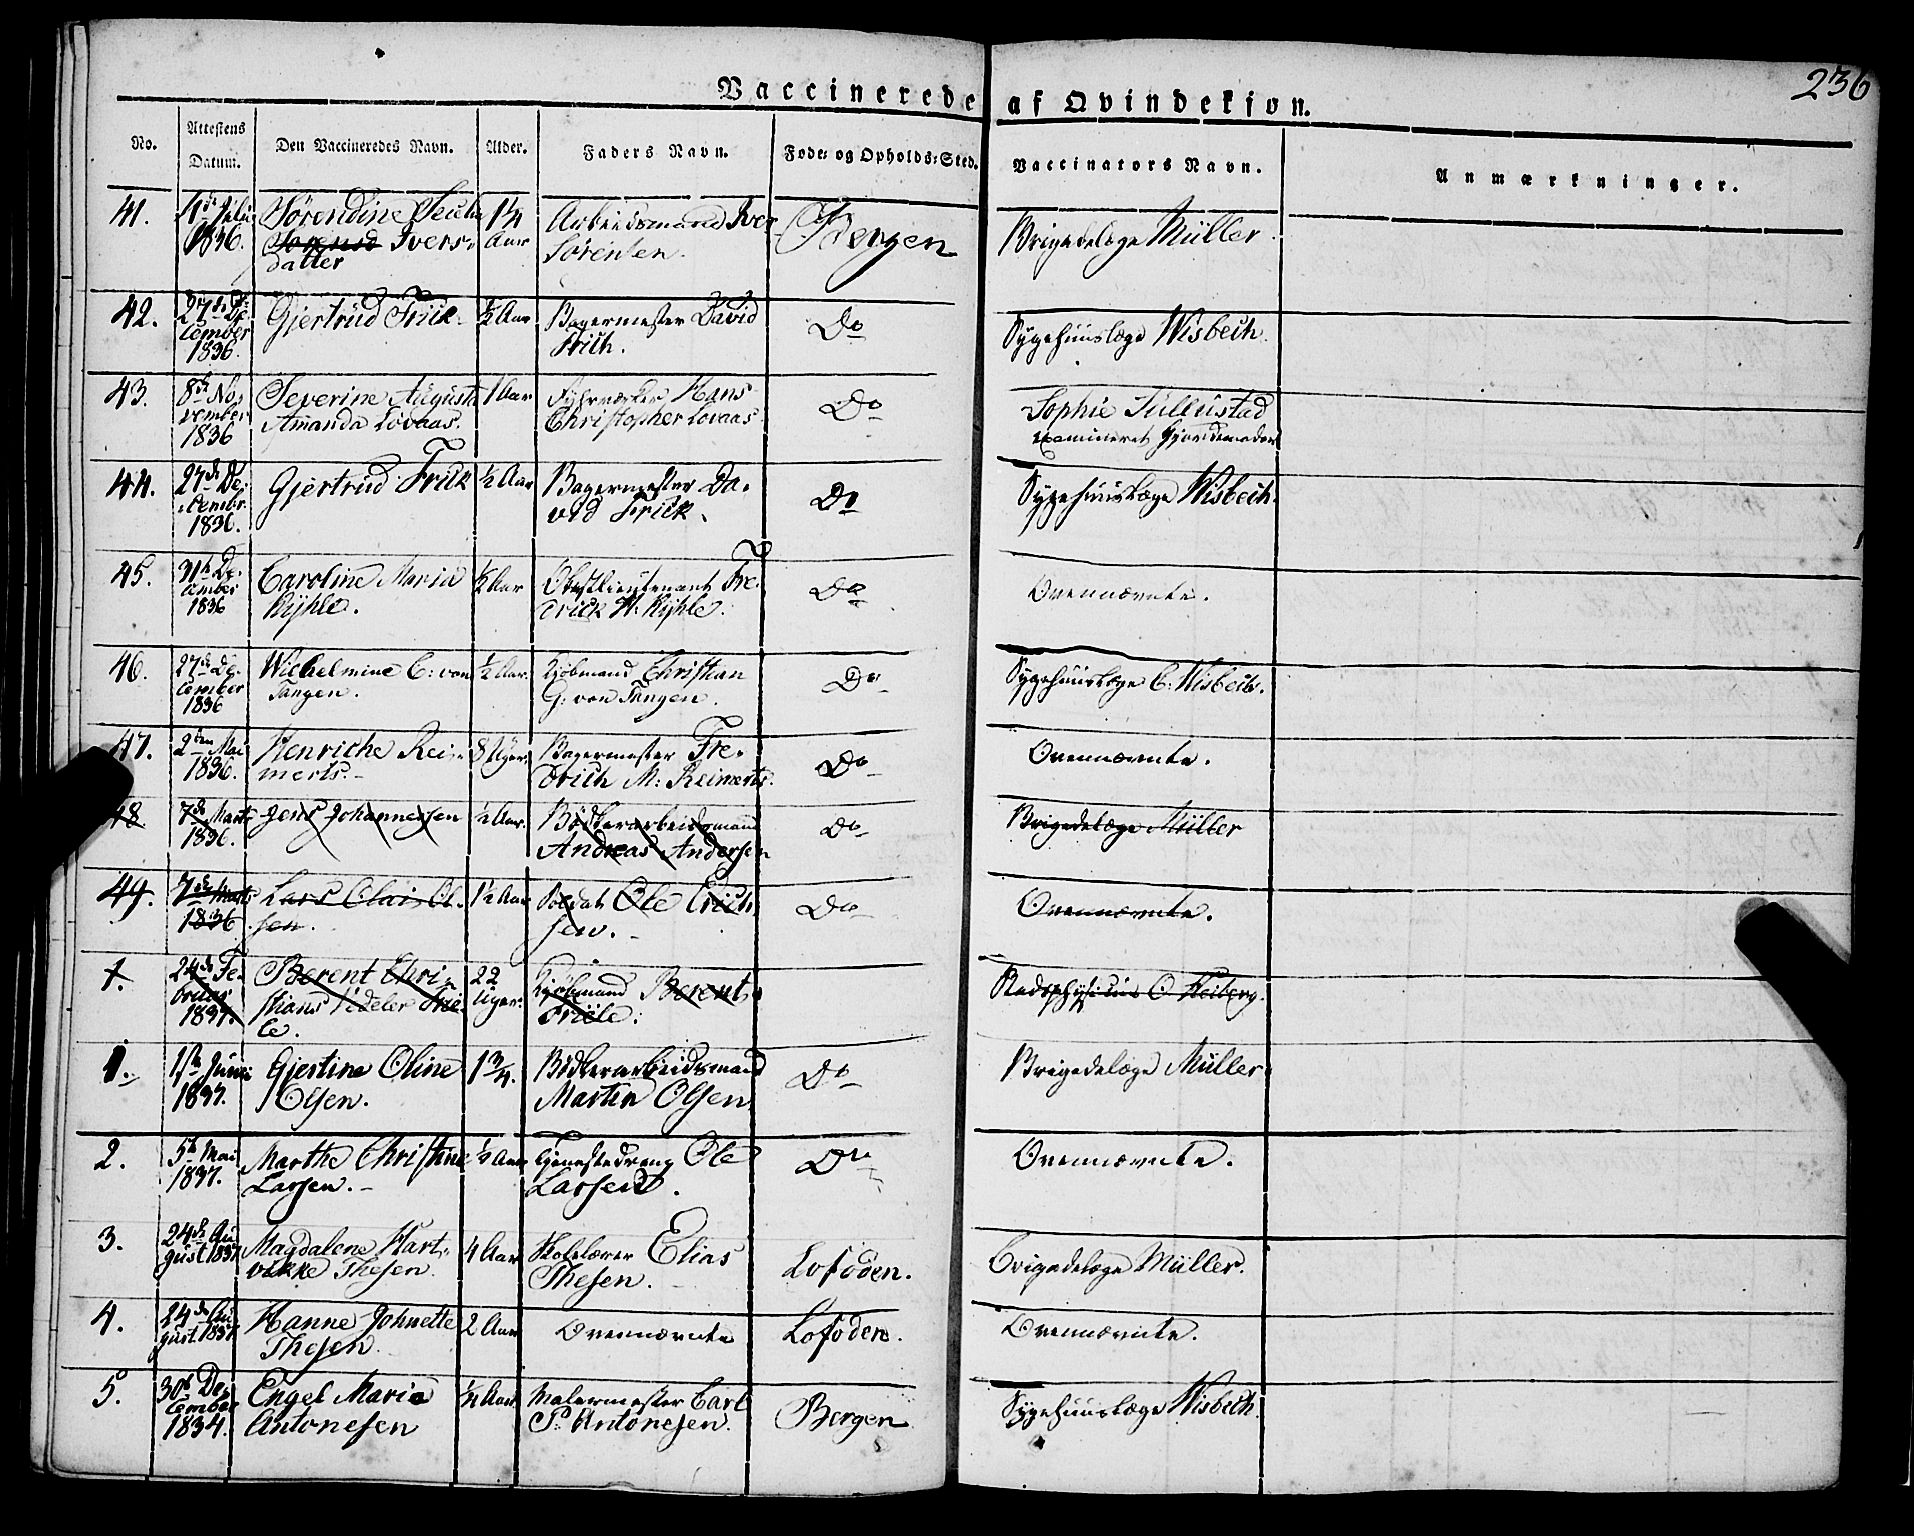 236
Vaccinerede af Qvindekjøn.
No. Attestens Datum. Den Vaccineredes Navn. Alder. Faders Navn. Føde- og Opholds-Sted. Vaccinators Navn. Anmærkninger.
41. 1836. Sørendine Iversdatter 1¼ Aar Arbeidsmand Iver Sørensen. Bergen Brigadelæge Müller.
42. 27de December 1836. Gjertrud Frick. ½ Aar Bagermester David Frich. Do Sygehuuslæge Wisbech.
43. 8de November 1836 Severine Augusta Amanda Lovaas. 1 Aar Hans Christopher Lovaas Do Sophie Tullustad examineret Gjordemoder
44. 27de December 1836. Gjertrud Frick ½ Aar Bagermester David Frick. Do Sygehuuslæge Wisbech.
45. 31te December 1836 Caroline Maria Kyhle. ½ Aar Obestlieutenant Fredrick W. Kyhle. Do Ovennævnte.
46. 27de December 1836 Wilhelmine C: von Tangen. ½ Aar. Kjøbmand Christian G: von Tangen. Do Sygehuuslæge C. Wisbech.
47. 2den Mai 1836. Henriche Reimerts. 8 Uger. Bagermester Fredrich M: Reimerts. Do Ovennævnte.
48 7de Marts 1836. Jens Johannessen ½ Aar. Bødkerarbeidsmand Andreas Andersen Do Brigadelæge Müller
49. 7de Marts 1836 Lars Olai Olsen. 1½ Aar Soldat Ole Erichsen. Do Ovennævnte.
1. 24de Februar 1837. Berent Christians Friele. 22 Uger. Kjøbmand Berent Friele. Stadsphysicus O. Heiberg.
1. Juni 1837. Gjertine Oline Olsen. 1¾. Bødkerarbeidsmand Martin Olsen. Do Brigadelæge Müller
2. 5te Mai 1837. Marthe Christine Larsen. ½ Aar Tjenestedreng Ole Larsen. Do Ovennævnte.
3. 24de August 1837. Magdalene Hartvikke Thesen. 4 Aar Skolelærer Elias Thesen. Lofoden. Brigadelæge Müller.
4. 24de August 1837. Hanne Johnette Thesen. 2 Aar Ovennævnte Lofoden. Ovennævnte.
5. 30te December 1834. Engel Maria Antonesen ½ Aar. Malermester Carl P. Antonesen. Bergen Sygehuuslæge Wisbech.